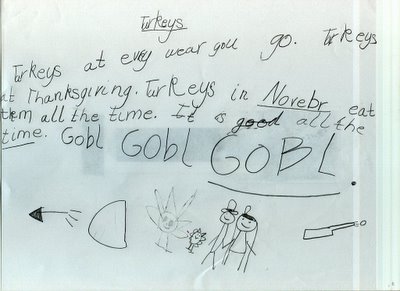 Turkeys
Turkeys at evry wear you go. Turkeys
at Thanksgiving. Turkeys in Novebr eat
tem all the time. It is good all the
time. Gobl Gobl GOBL.